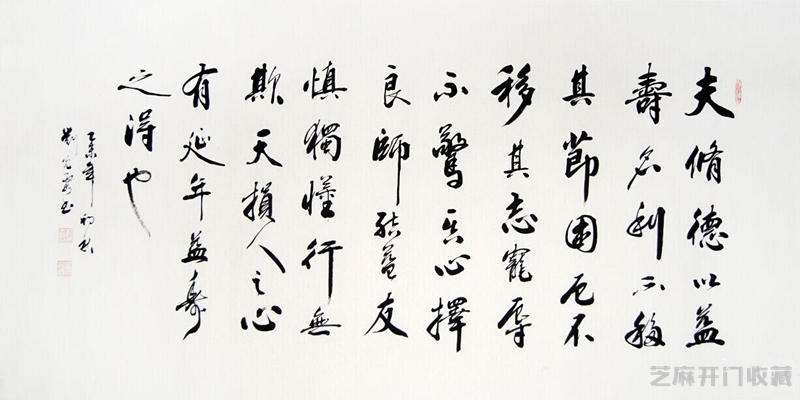 夫脩德以益
壽名利不移
其節困厄不
移其志寵辱
不驚其心擇
良師結益友
慎獨慬行無
欺天損人之心
有延年益壽
之得也
乙未年初秋
芝麻开门收藏